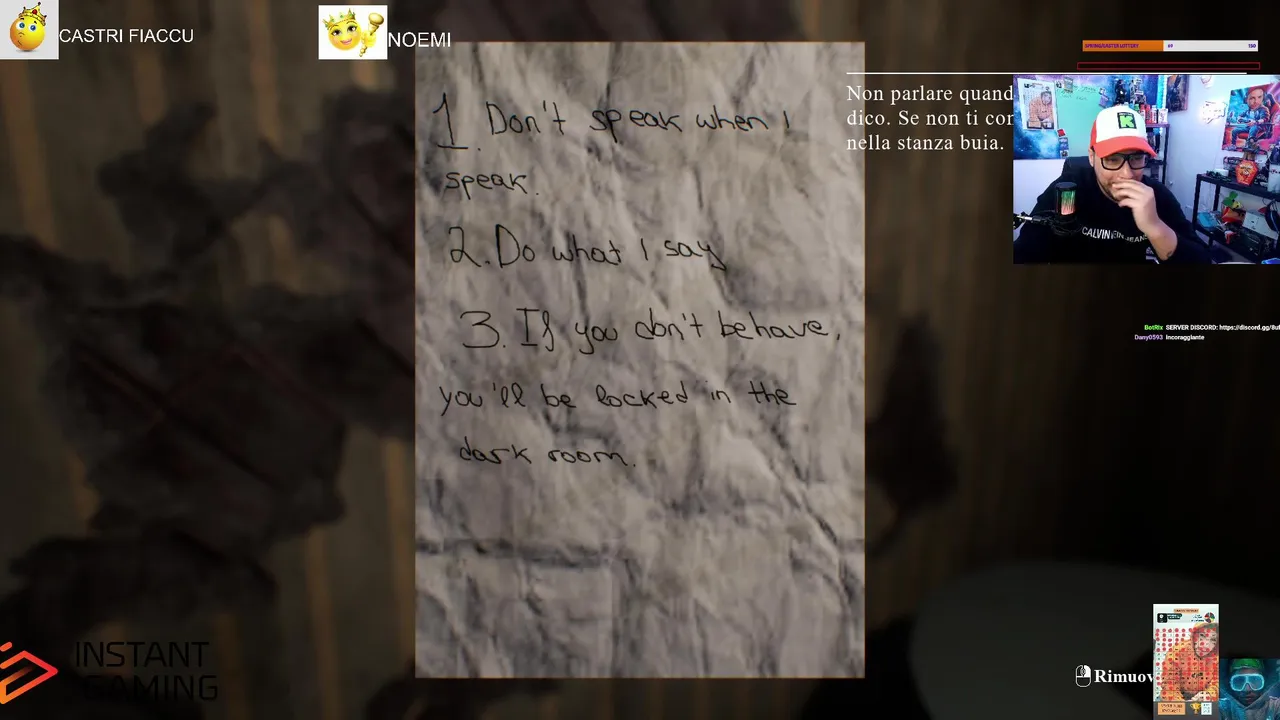 CASTRI FIACCU
NOEMI
SPRING/EASTER LOTTERY 69 150
1. Don't speak when I
speak.
2. Do what I say
3. If you don't behave,
you'll be locked in the
dark room.
Non parlare quand
dico. Se non ti co
nella stanza buia.
K
CALVIN KLEIN JEANS
BotRix SERVER DISCORD: https://discord.gg/8u
Dany0593 incoraggiante
INSTANT
GAMING
Rimuov